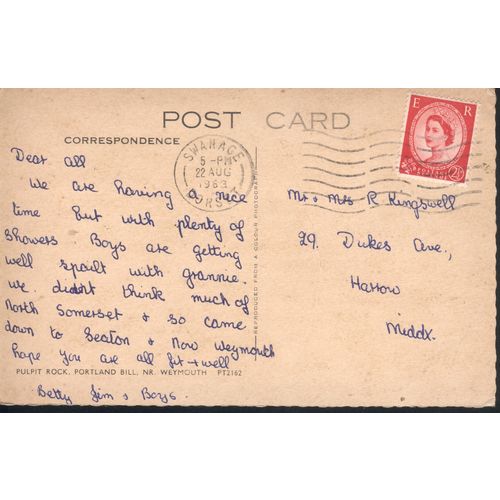 POST CARD
CORRESPONDENCE
SWANAGE
5-PM
22 AUG
1963
DORSET
E R
POSTAGE
2½D
Dear all
We are having a nice
time but with plenty of
showers Boys are getting
well spoilt with grannie.
we didnt think much of
North Somerset & so came
down to Seaton & now weymouth
hope you are all fit & well
PULPIT ROCK, PORTLAND BILL, NR. WEYMOUTH PT2162
Betty Jim & Boys.
REPRODUCED FROM A COLOUR PHOTOGRAPH
Mr & Mrs R Kingswell
29. Dukes Ave.,
Harrow
Middx.